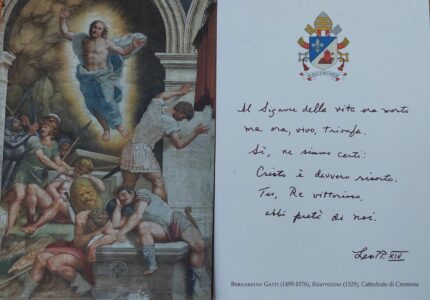 Il Signore della vita era morto
ma ora, vivo, trionfa.
Sì, ne siamo certi:
Cristo è davvero risorto.
Tu, Re vittorioso,
abbi pietà di noi.
Leo PP. XIV
BERNARDINO GATTI (1495-1576), Risurrezione (1529), Cattedrale di Cremona